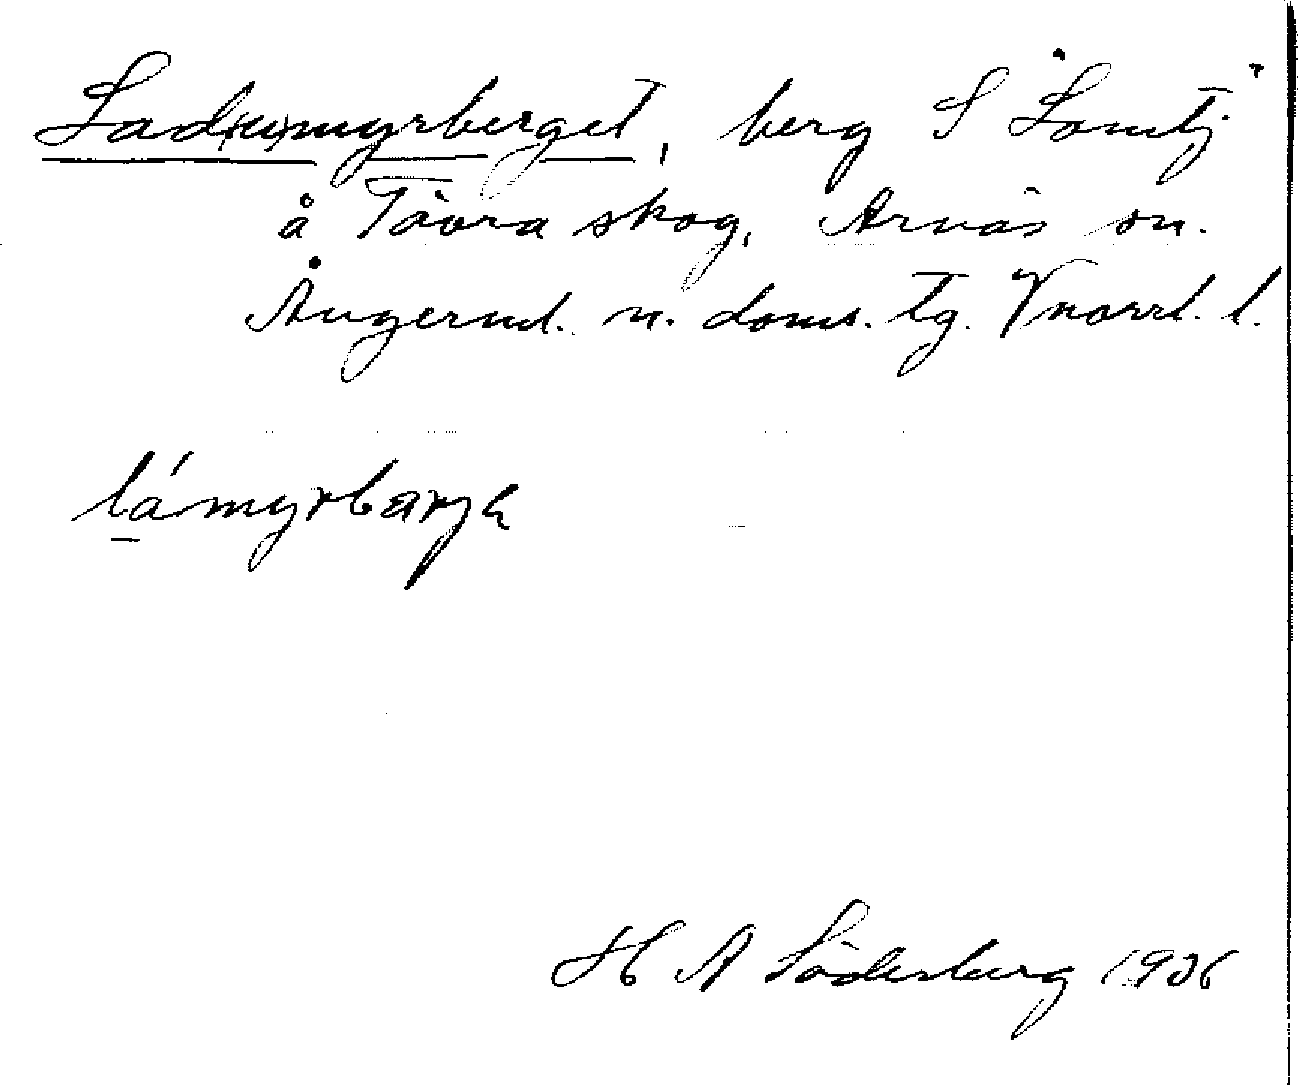 Lad(u)myrberget, berg S "Lomtj."
å Tävra skog, Arnäs sn.
Ångerml. n. doms. tg. Vnorrl. l.
lámyrbarjɂ
H A Söderberg 1906